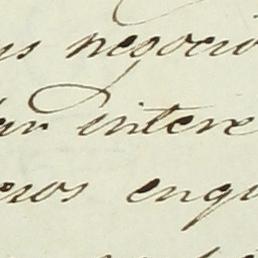 us negocio
dar intere
eros engu